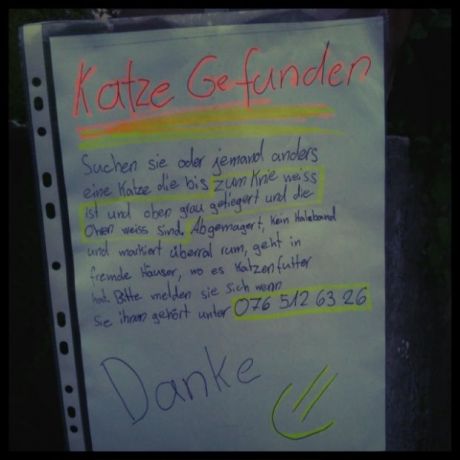 Katze Gefunden
Suchen sie oder jemand anders
eine Katze die bis zum Knie weiss
ist und oben grau getiegert und die
Ohren weiss sind. Abgemagert, kein Halsband
und markiert überral rum, geht in
fremde Häuser, wo es Katzenfutter
hat. Bitte melden sie sich wenn
sie ihnen gehört unter 076 512 63 26
Danke